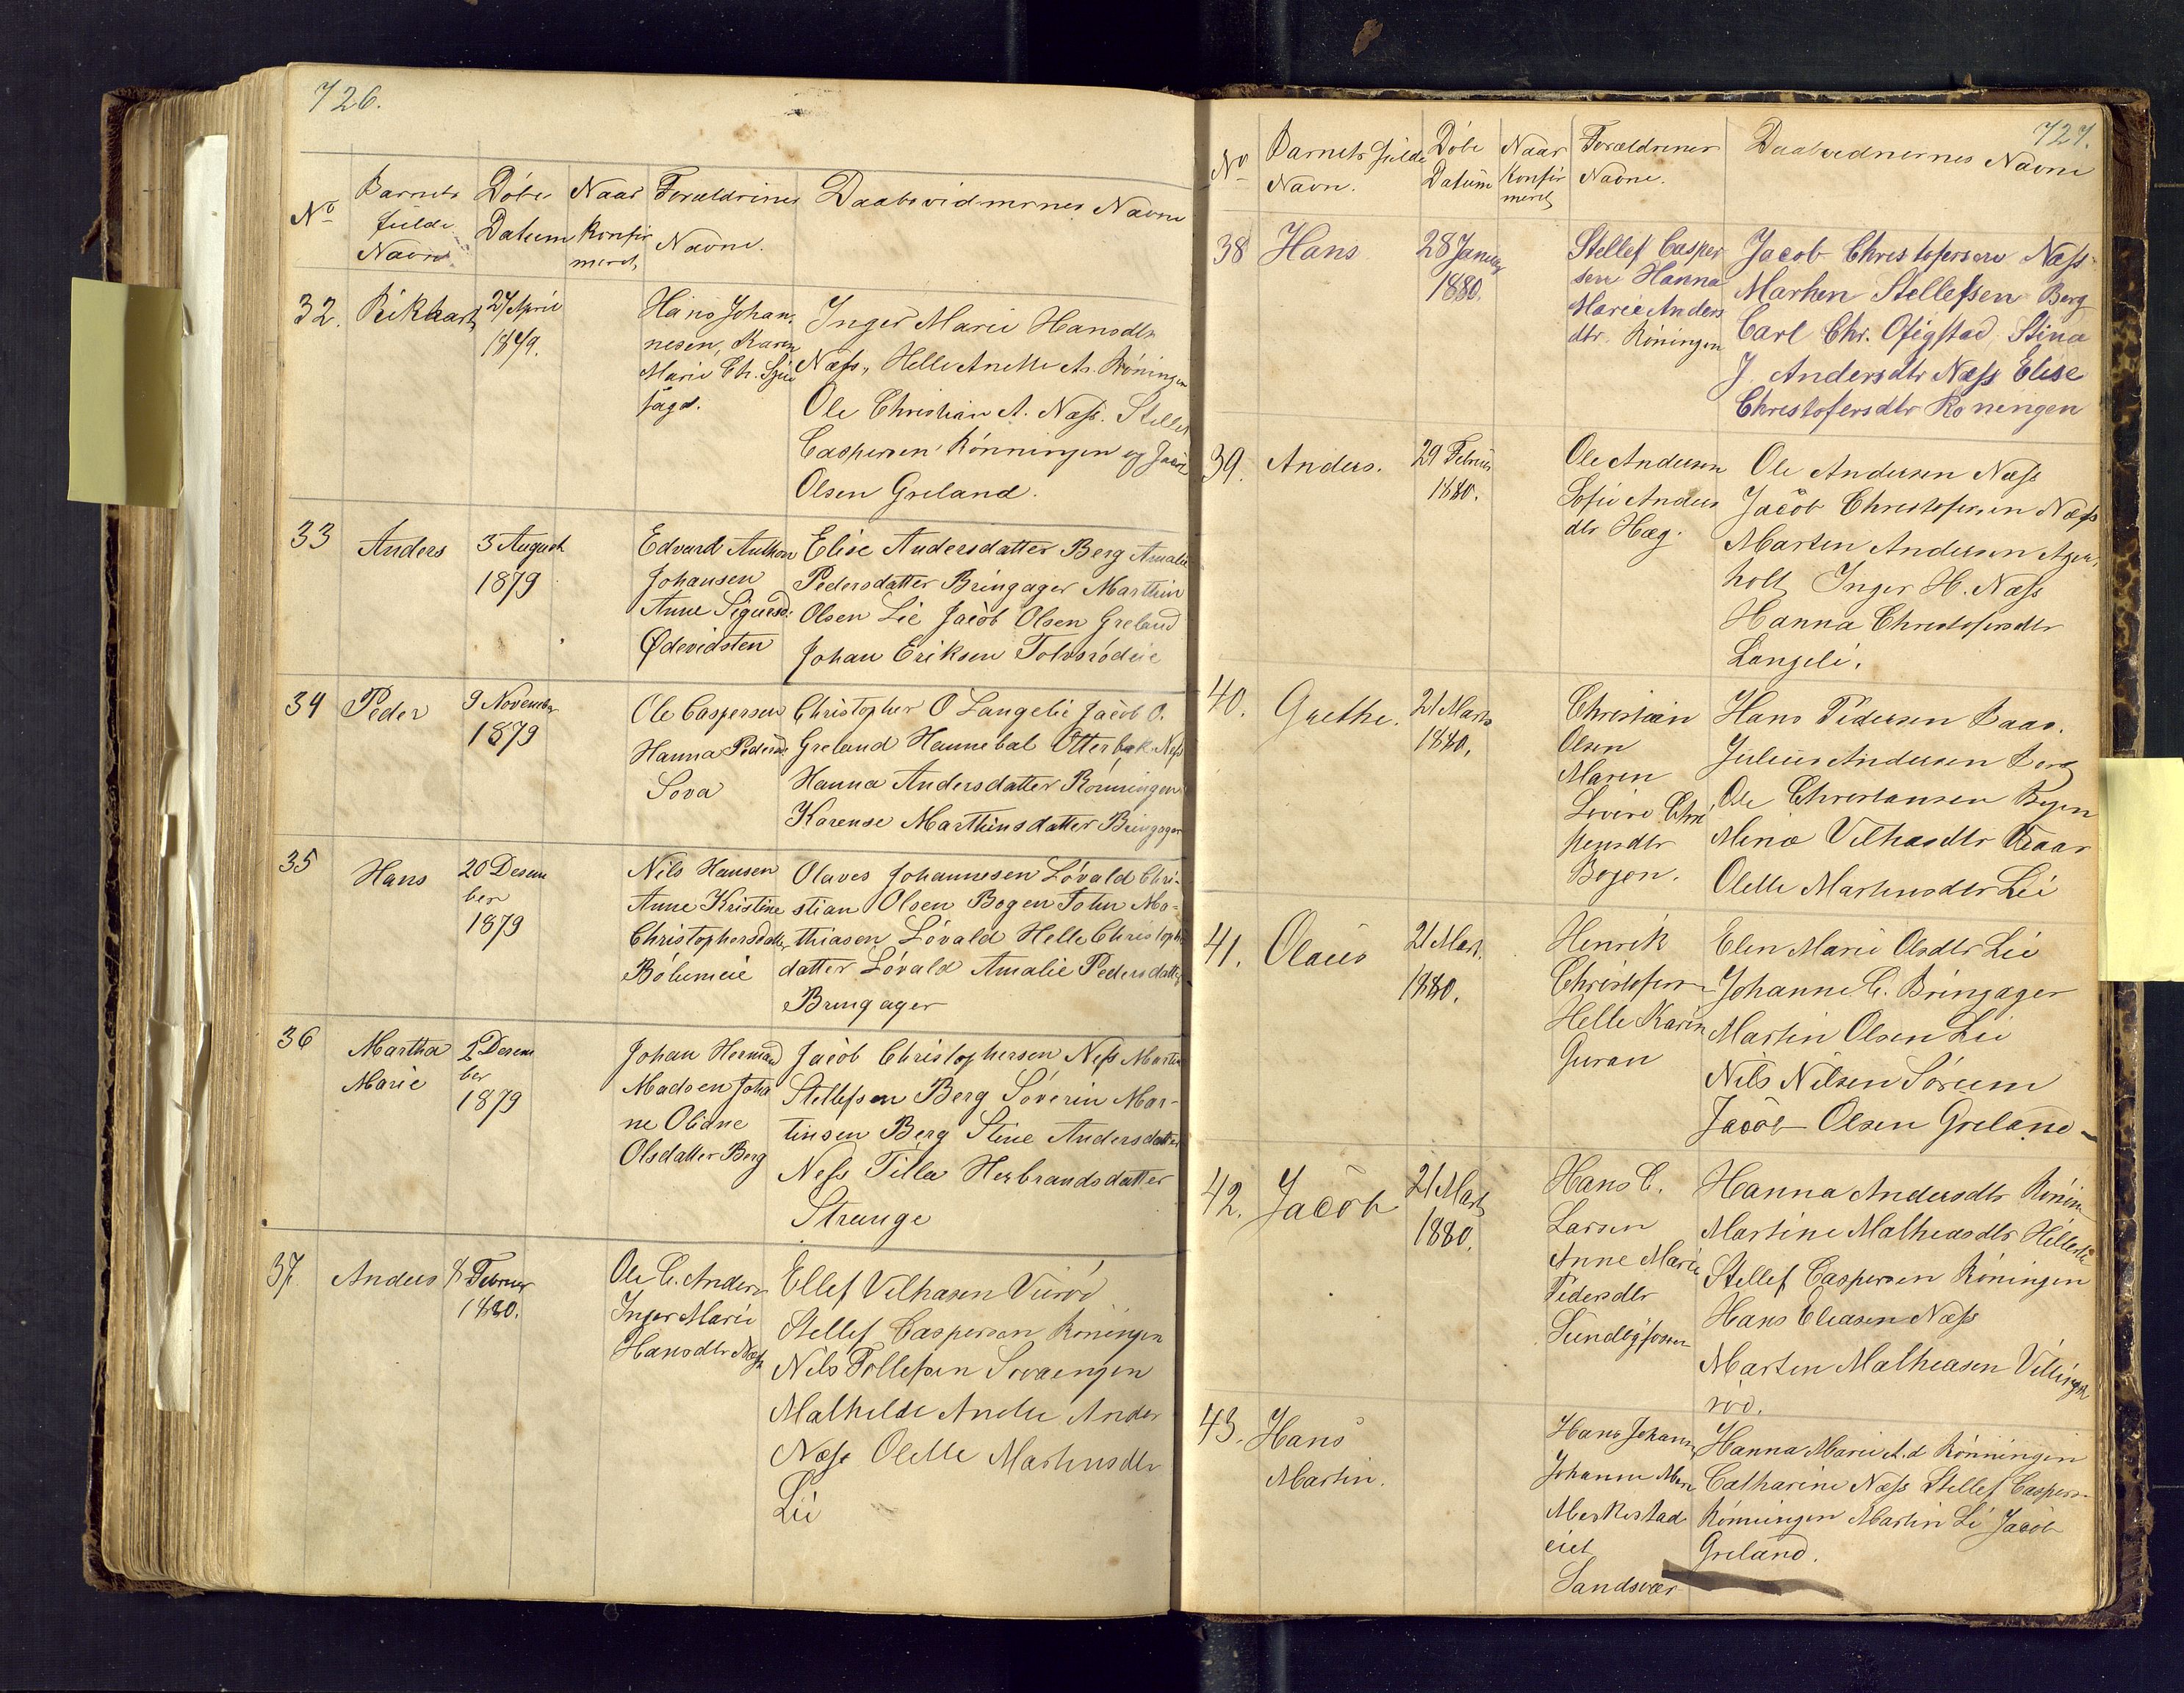 726.
No
Barnets fulde Navn
Døbe Datum
Naar Konfirmeret
Forældrenes Navne.
Daabsvidnernes Navne
32.
Rikhart
27 April
1879.
Hans Johan-
nesen, Karen
Marie Ch.
Inger Marie Hansdtr
Næss, Helle Anette A. Røningen
Ole Christian A. Næss. Stellef
Caspersen Rønningen og Jacob
Olsen Greland.
33
Anders
3 August
1879
Edvard Anthon
Johansen
Anne Sigursd:
Ødevidsten
Elise Andersdatter Berg Amalie
Pedersdatter Bringager Marthin
Olsen Lie Jacob Olsen Greland
Johan Eriksen Tolvsrødeie
34
Peder
9 November
1879
Ole Caspersen
Hanna Pedersd
Sova
Christopher O Langelie Jacob O.
Greland Hannebal Otterbæk Næss
Hanna Andersdatter Rønningen
Karense Marthinsdatter Bringager
35
Hans
20 Desem
ber
1879
Nils Hansen
Anne Kristine
Christophersdatter
Bølumeie
Olaves Johannesen Løvald Chri-
stian Olsen Bogen John Ma-
thiasen Løvald Helle Christoph
datter Løvald Amalie Pedersdatter
Bringager
36
Martha
Marie
2 Desem
ber
1879
Johan Herman
Madsen Joha
ne Oliane
Olsdatter Berg
Jacob Christophersen Ness Martin
Stellefsen Berg Søverin Mar-
tinsen Berg Stine Andersdatter
Ness Tilla Herbrandsdatter
Strange
37.
Anders
8 Februar
1880.
Ole C. Anders
Inger Marie
Hansdtr Næss
Ellef Vilhasen
Stellef Caspersen Røningen
Nils Tollefsen Sovaengen
Mathilde Andrie Ander
Næss Olette Martinsdtr
Lii
727.
No
Barnets fulde Navn.
Døbe Datum
Naar Konfirmeret
Forældrenes Navne.
Daabsvidnernes Navne
38
Hans
28 Januar
1880.
Stellef Casper
sen Hanna
Marie Anders
dtr. Røningen
Jacob Christofersen Næss
Marhen Stellefsen Berg
Carl Chr. Ofigstad Stina
J. Andersdtr Næss Elise
Christofersdtr Roningen
39.
Anders.
29 Februar
1880.
Ole Andersen
Sofie Anders
dtr Hæg.
Ole Andersen Næss
Jacob Christofersen Næss
Marten Andersen Ager-
holt Inger H. Næss
Hanna Christofersdtr
Langeli.
40.
Grethe.
21 Marts
1880.
Christian
Olsen
Maren
Sevine Chri
stensdtr
Bogen.
Hans Pedersen Baas.
Julius Andersen Berg
Ole Christansen Bogen
Mina Vilhasdtr Baas
Olette Martinsdtr Lii
41.
Olaus
21 Mart.
1880.
Henrik
Christofers
Helle Karin
Guran
Elen Marie Olsdtr Lie
Johanne C. Bringager
Martin Olsen Lii
Nils Nilsen Sørum
Jacob Olsen Greland
42.
Jacob
21 Marts
1880.
Hans C.
Larsen
Anne Marie
Pedersdtr
Hanna Andersdtr Rønin
Martine Matheasdtr
Stellef Caspersen Røningen
Hans Eliasen Næss
Marten Matheasen Villings
rød.
43.
Hans
Martin.
Hans Johann
Johanne Marie
Meskestad
eiet
Sandsvær
Hanna Marie A.d Rønningen
Catharine Næss Stellef Caspers
Rønningen Martin Li Jacob
Greland.